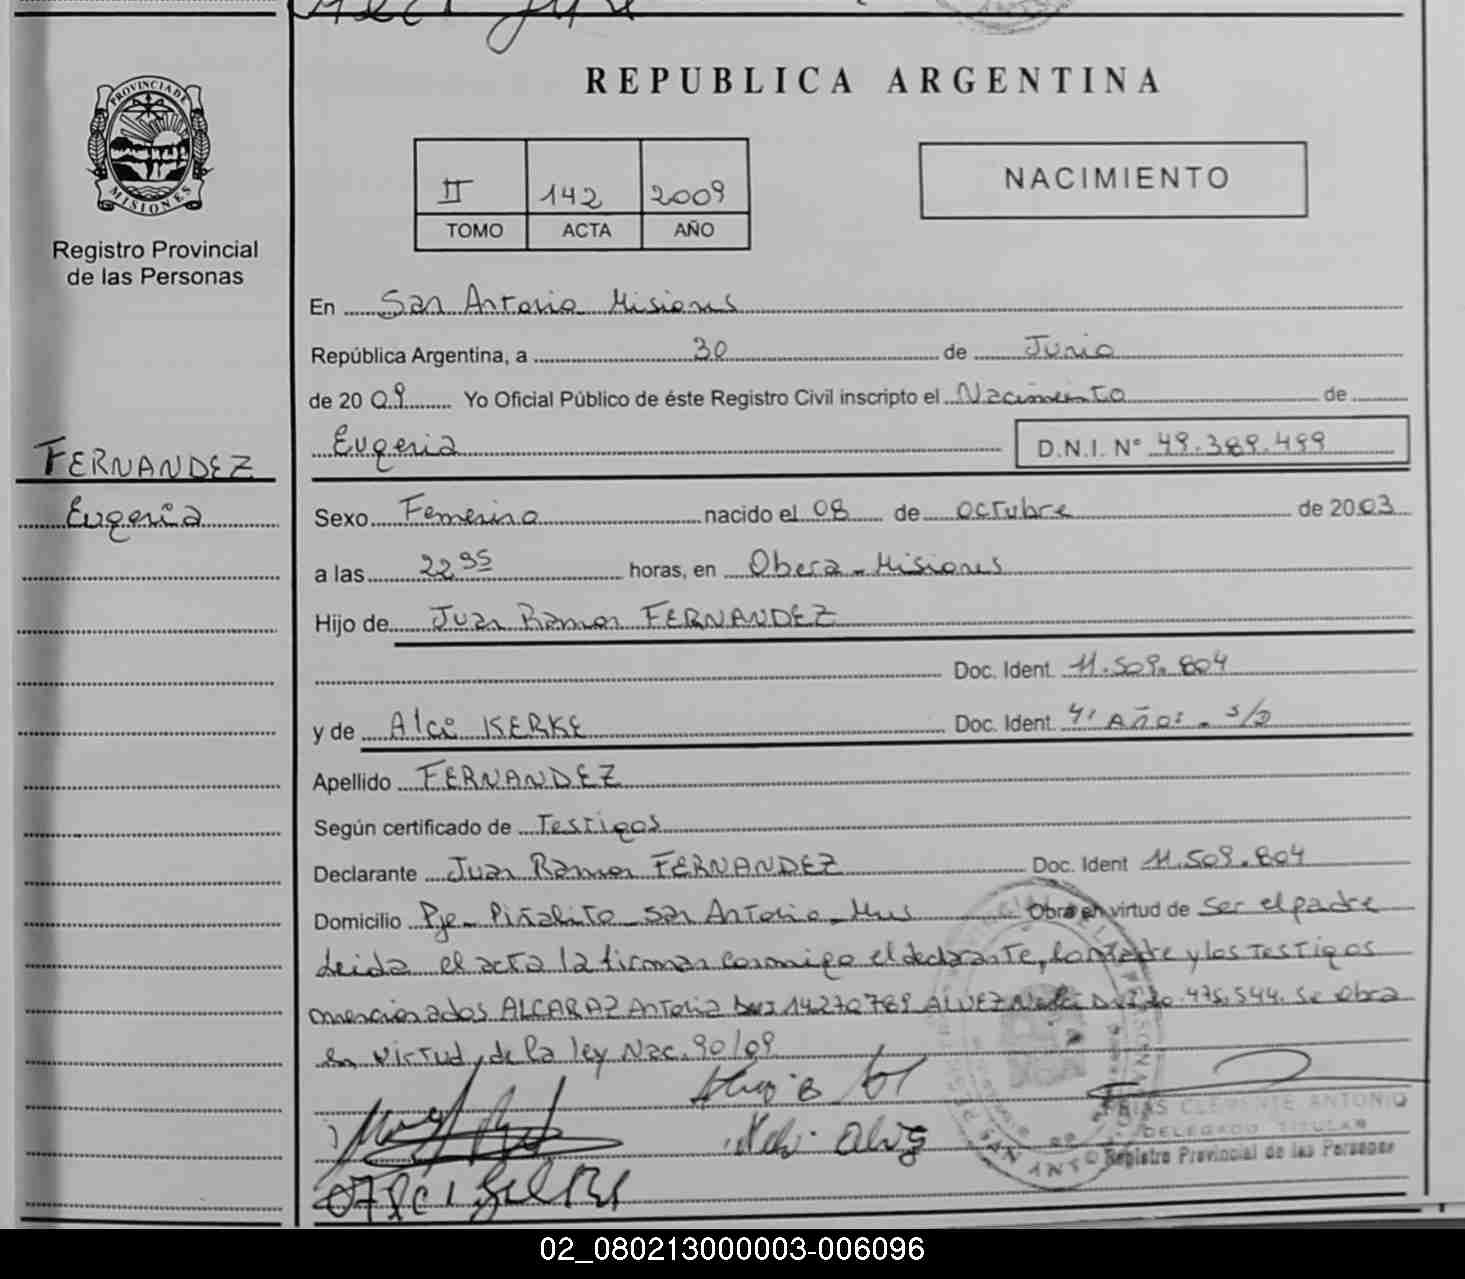 REPUBLICA ARGENTINA
PROVINCIA DE
MISIONES
Registro Provincial
de las Personas
II 142 2009
TOMO ACTA AÑO
NACIMIENTO
En San Antonio Misiones
República Argentina, a 30 de Junio
de 2009 Yo Oficial Público de éste Registro Civil inscripto el Nacimiento de
Eugenia D.N.I. Nº 49.389.499
FERNANDEZ
Eugenia
Sexo Femenino nacido el 08 de octubre de 2003
a las 22 35 horas, en Obera - Misiones
Hijo de Juan Ramon FERNANDEZ
Doc. Ident. 11.509.804
y de Alci KERKE Doc. Ident. 41 Años - s/d
Apellido FERNANDEZ
Según certificado de Testigos
Declarante Juan Ramon FERNANDEZ Doc. Ident 11.509.804
Domicilio Pje - Piñalito San Antonio - Mnes Obra en virtud de ser el padre
Leida el acta la firman conmigo el declarante, la Madre y los testigos
mencionados ALCARAZ Antonia 14270789 ALVEZ 475.544. Se obra
en virtud de la ley Nac. 90/09
FRIAS CLEMENTE ANTONIO
DELEGADO TITULAR
Registro Provincial de las Personas
02_080213000003-006096